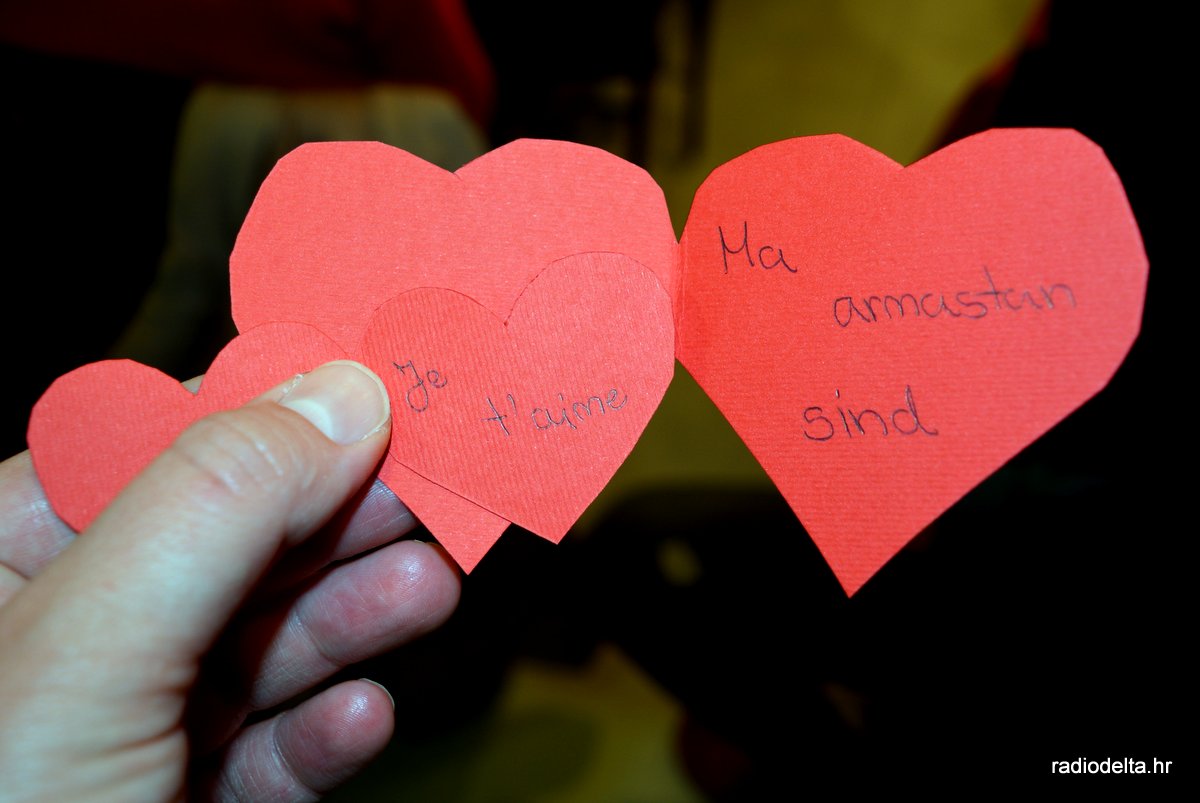 Je
t'aime
Ma
armastan
sind
radiodelta.hr